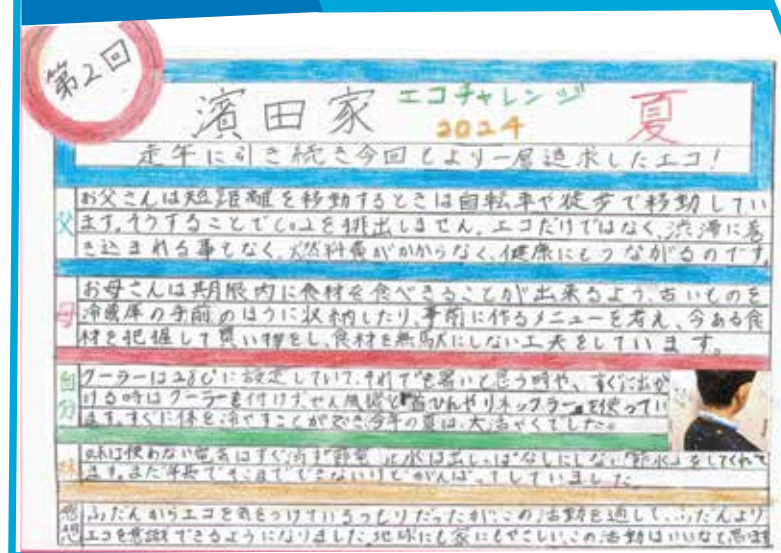 第2回
濱田家 エコチャレンジ 2024 夏
去年に引き続き今回もより一層追求したエコ!
父
お父さんは短距離を移動するときは自転車や徒歩で移動してい
ます。そうすることでCO2を排出しません。エコだけではなく、渋滞に巻
き込まれる事もなく、燃料費がかからなく、健康にもつながるのです。
母
お母さんは期限内に食材を食べきることが出来るよう、古いものを
冷蔵庫の手前のほうに収納したり、事前に作るメニューを考え、今ある食
材を把握して買い物をし、食材を無駄にしない工夫をしています。
自分
クーラーは28℃に設定していて、それでも暑いと思う時や、すぐに出か
ける時はクーラーを付けず、せん風機と首ひんやりネッククーラーを使ってい
ます。すぐに体を冷やすことができ、今年の夏は、大活やくでした。
妹
妹は使わない電気はすぐ消す節電、水は出しっぱなしにしない節水をしてくれて
ます。まだ年長でそこまでできないけどがんばってしていました。
感想
ふだんからエコを気をつけているつもりだったが、この活動を通して、ふだんより
エコを意識できるようになりました。地球にも家にもやさしい、この活動はいいなと思います